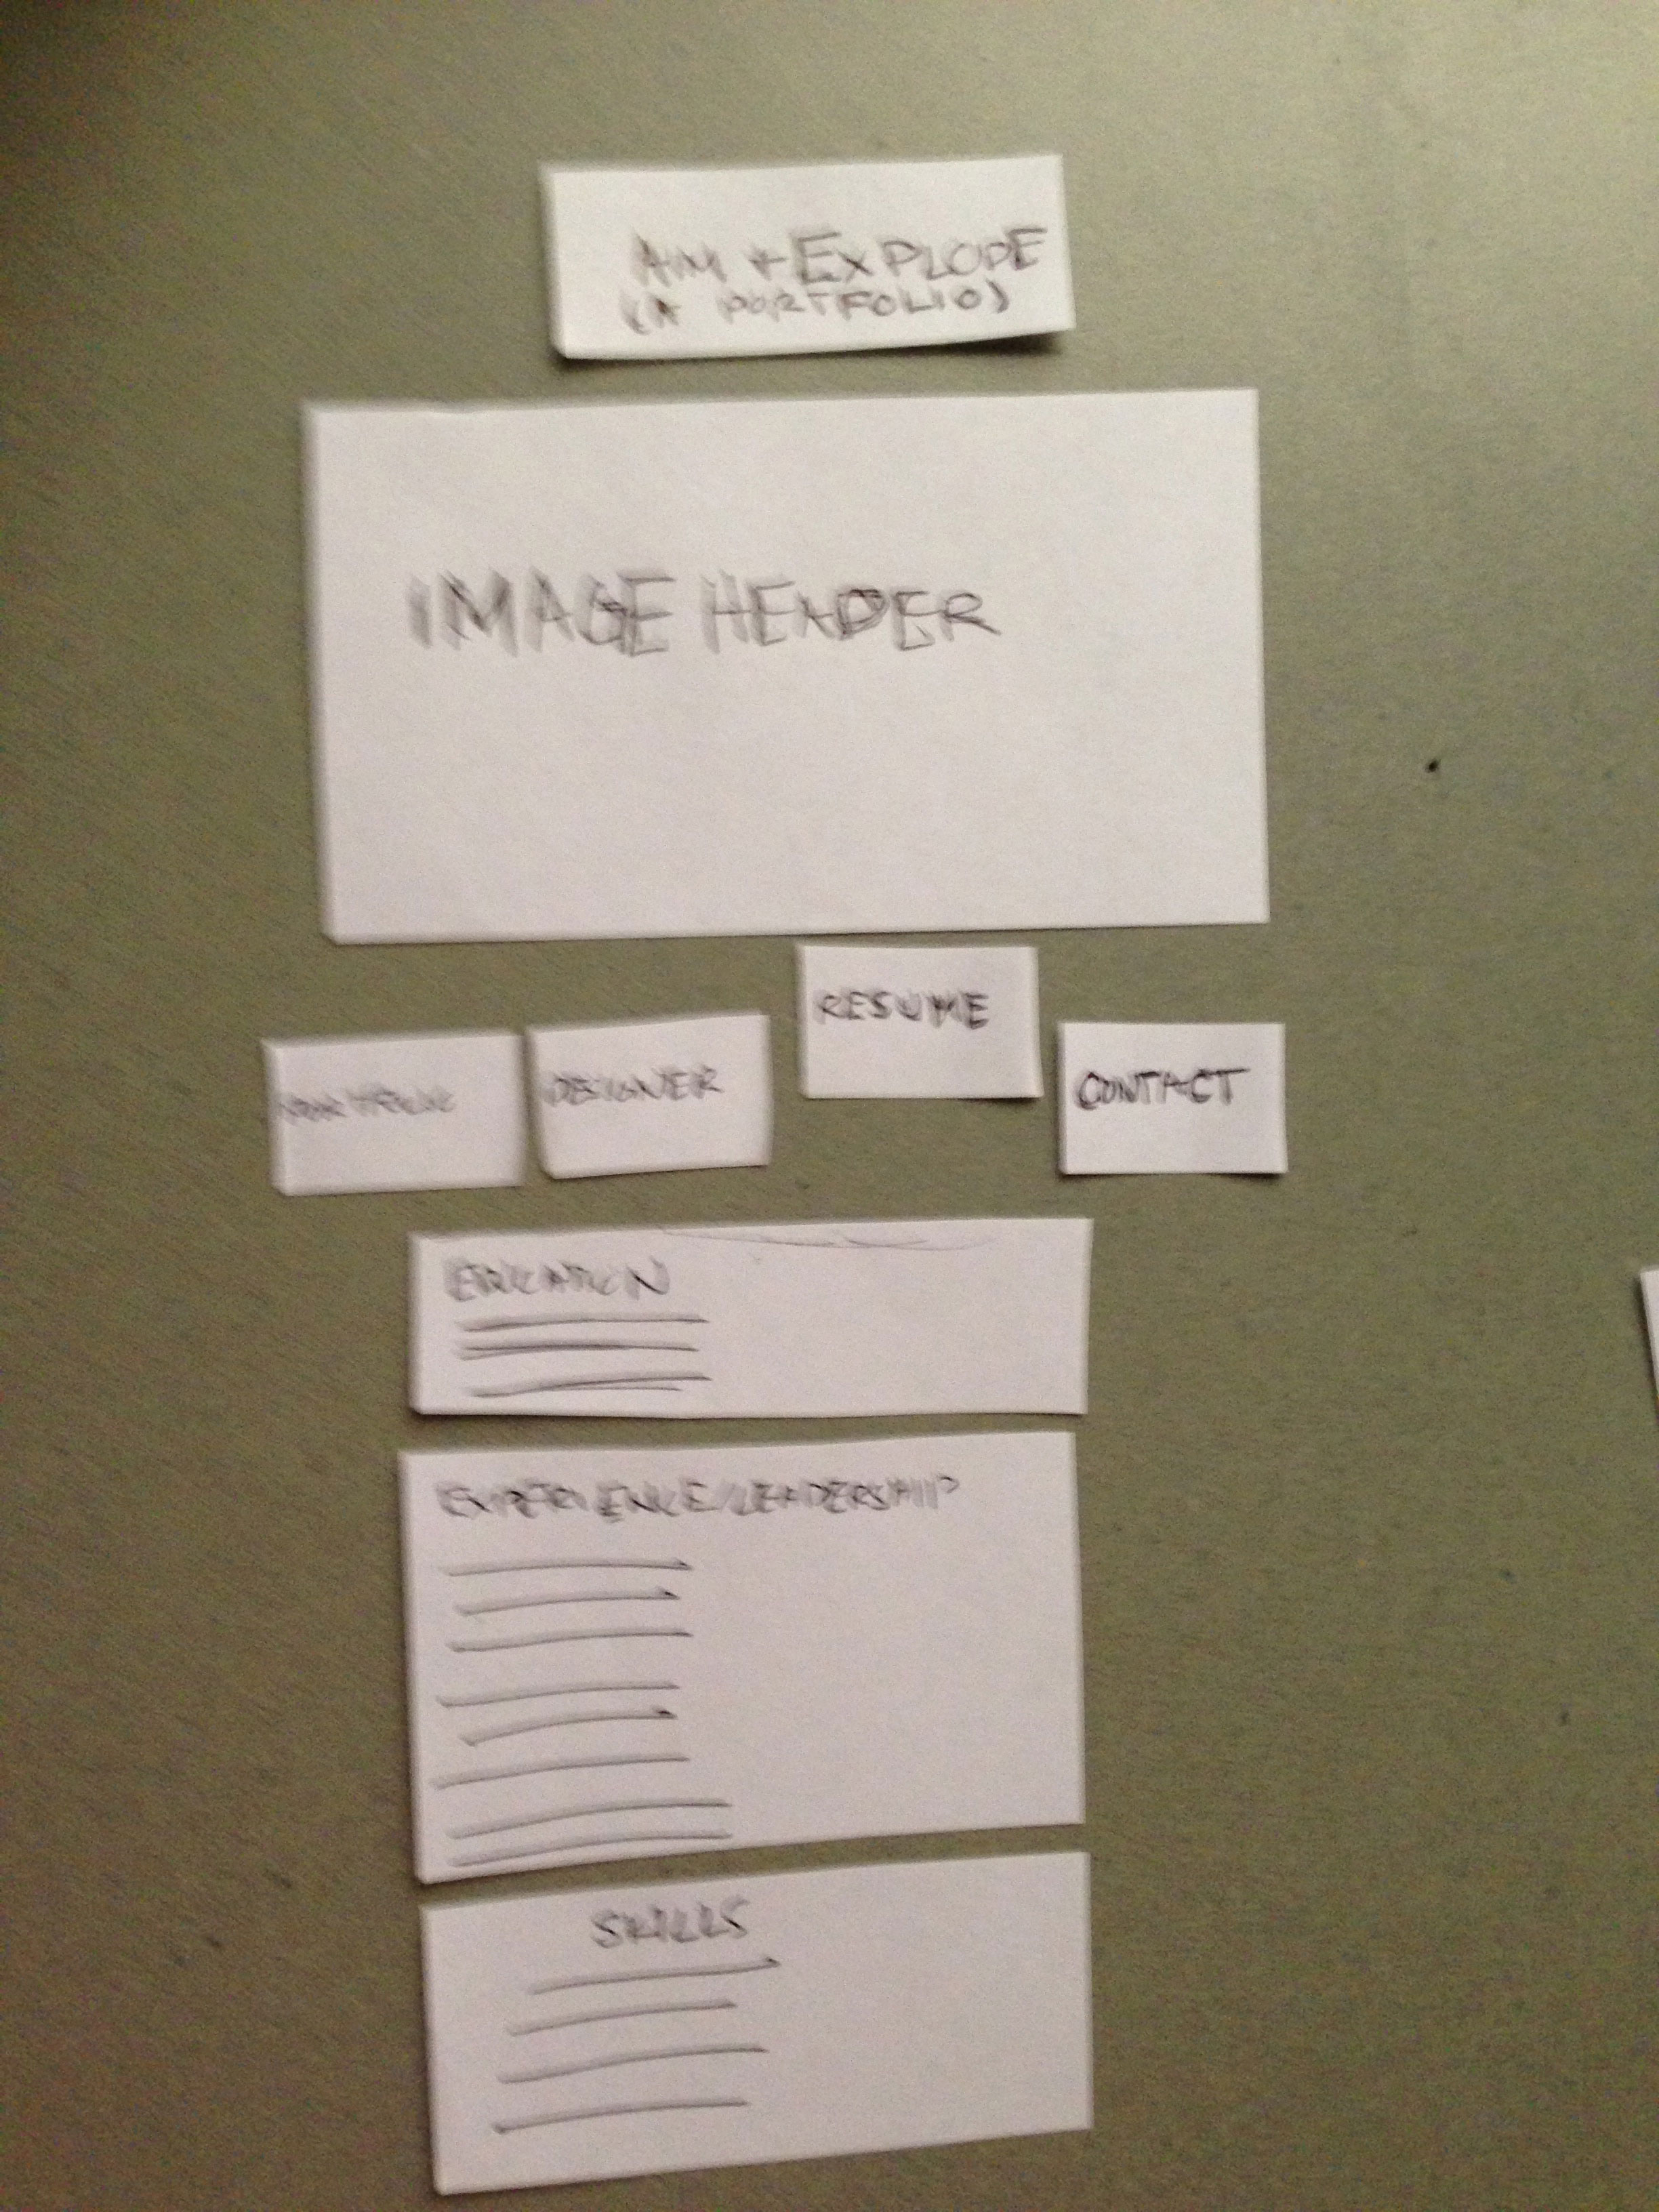 AIM + EXPLODE
(A PORTFOLIO)
IMAGE HEADER
DESIGNER
RESUME
CONTACT
EDUCATION
EXPERIENCE/LEADERSHIP
SKILLS